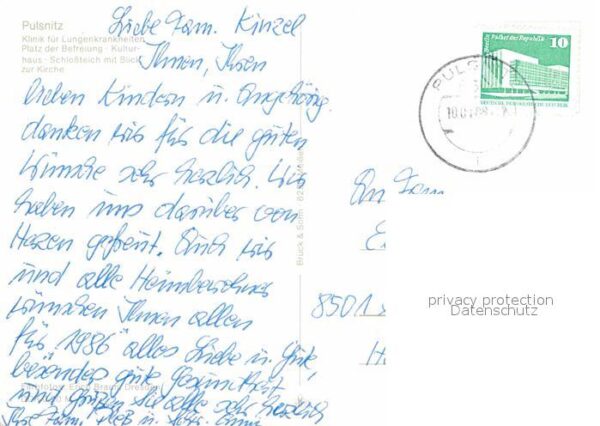 Pulsnitz
Klinik für Lungenkrankheiten
Platz der Befreiung · Kultur-
haus · Schloßteich mit Blick
zur Kirche
Liebe Fam. Kinzel
Ihnen, Ihren
lieben Kindern u. Angehörig.
danken wir für die guten
Wünsche sehr herzlich. Wir
haben uns darüber von
Herzen gefreut. Auch wir
und alle Heimbewohner
wünschen Ihnen allen
für 1986 alles Liebe u. Gute,
besonders gute Gesundheit
und grüßen Sie alle sehr herzlich
Ihre Fam.
Bruck & Sohn
An Fam
8501
privacy protection
Datenschutz
Berlin, Palast der Republik
10
DEUTSCHE DEMOKRATISCHE REPUBLIK
PULSN